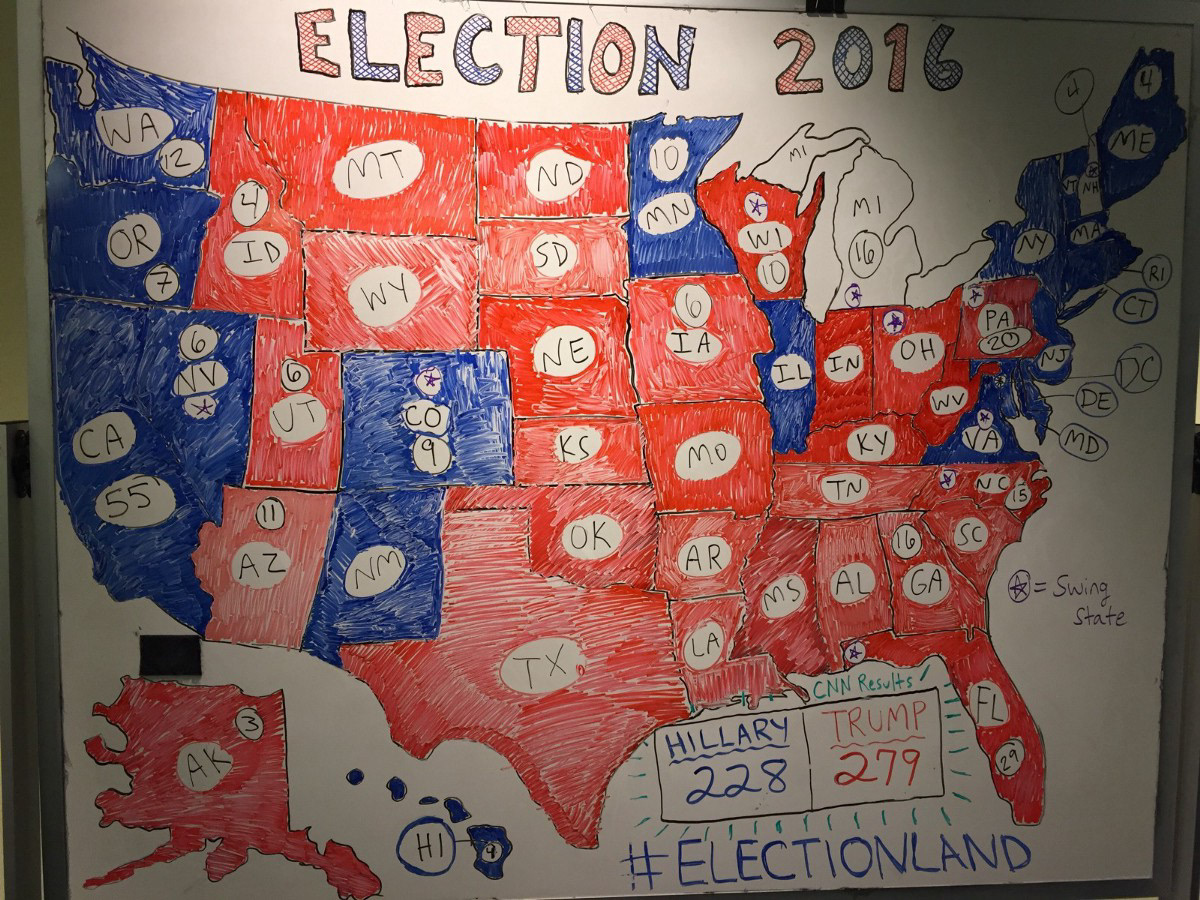 ELECTION 2016
WA
12
OR
7
4
ID
MT
WY
ND
SD
NE
KS
10
MN
6
IA
MO
WI
10
MI
MI
16
IL
IN
OH
PA
20
NY
VT
NH
4
4
ME
MA
RI
CT
NJ
DC
DE
MD
WV
VA
KY
TN
NC
15
SC
16
GA
AL
MS
AR
LA
OK
TX
6
NV
CA
55
6
UT
CO
9
11
AZ
NM
FL
29
= Swing
State
3
AK
HI
CNN Results
HILLARY
228
TRUMP
279
#ELECTIONLAND